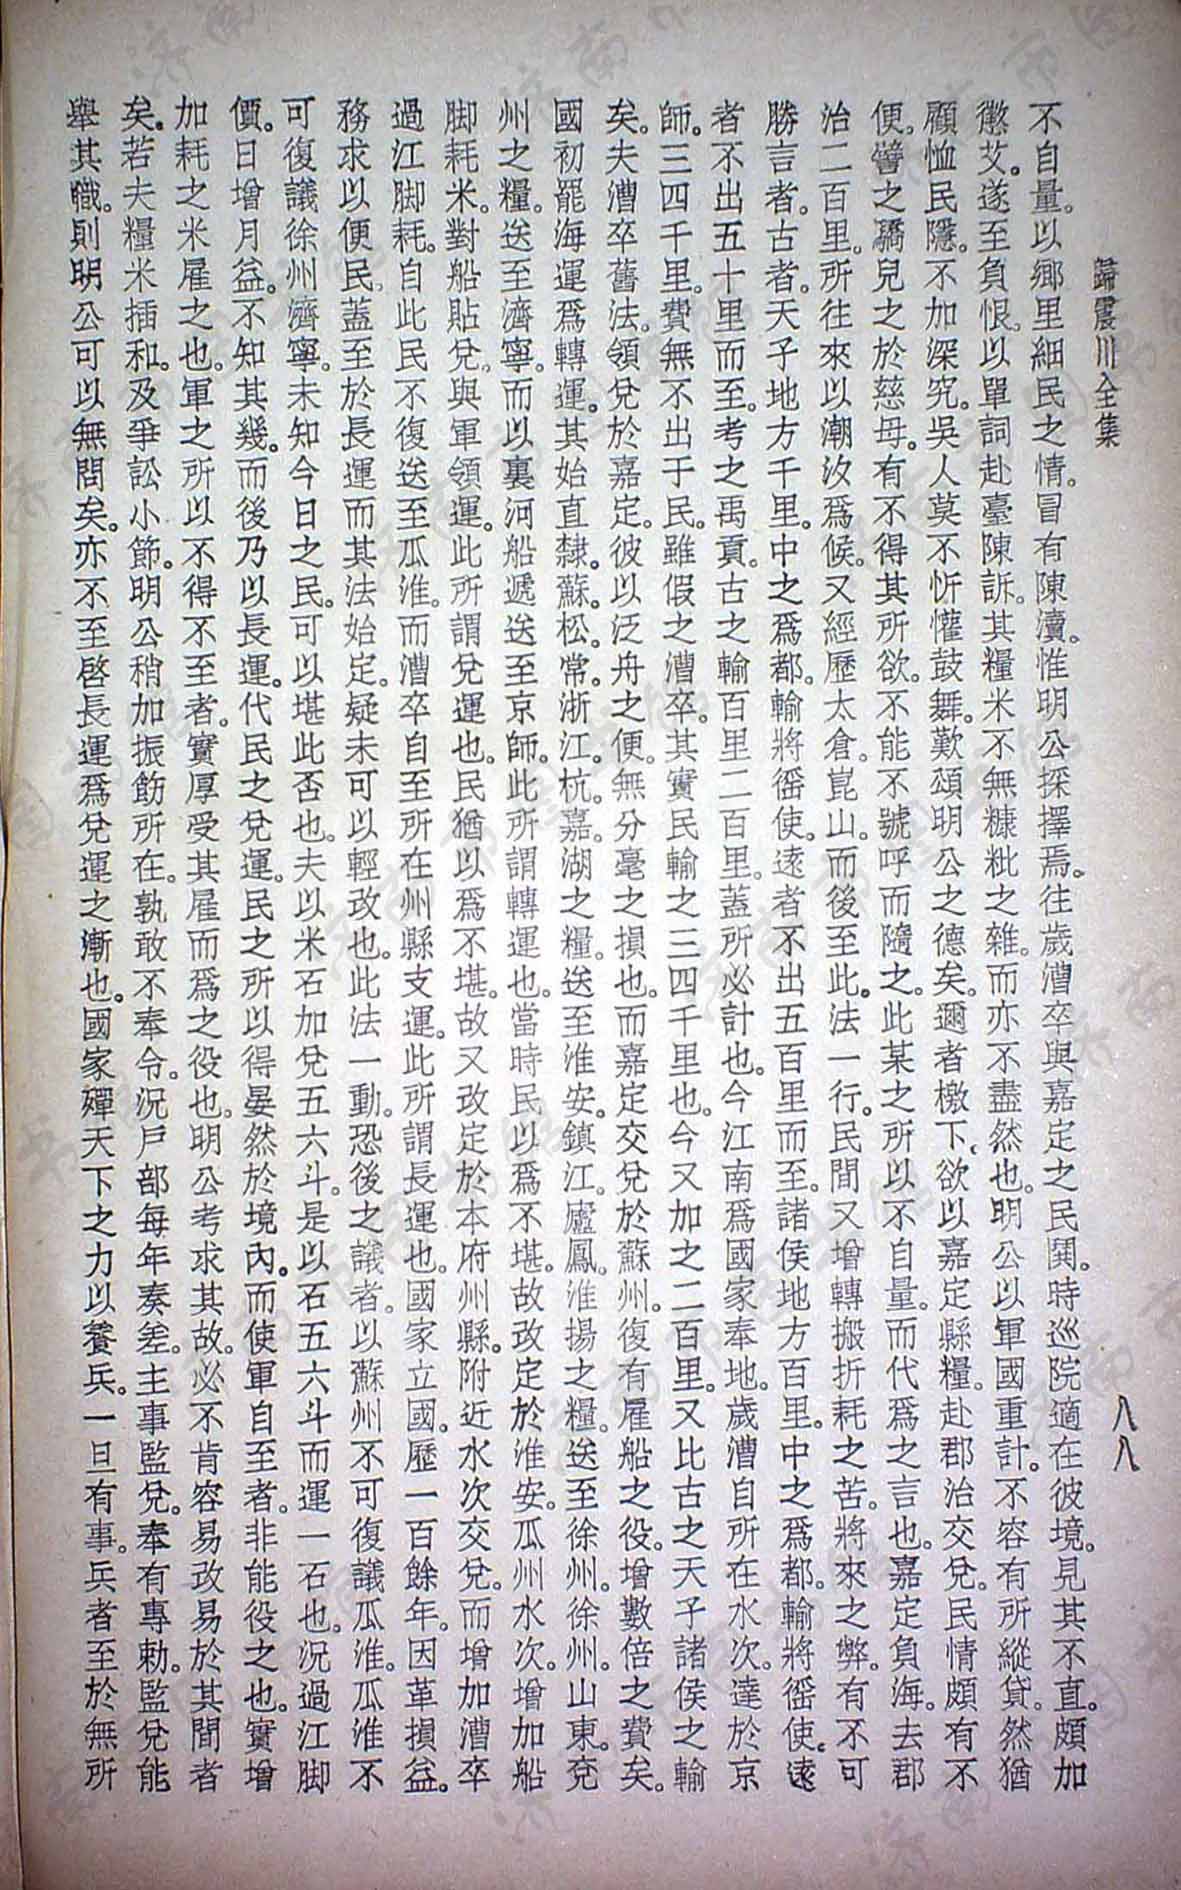 歸震川全集
八八
不自量。以鄉里細民之情。冒有陳瀆。惟明公採擇焉。往歲漕卒與嘉定之民鬨。時巡院適在彼境。見其不直。頗加
懲艾。遂至負恨。以單詞赴臺陳訴。其糧米不無糠粃之雜。而亦不盡然也。明公以軍國重計。不容有所縱貸。然猶
顧恤民隱。不加深究。吳人莫不忻懽鼓舞。歎頌明公之德矣。邇者檄下、欲以嘉定縣糧。赴郡治交兌。民情頗有不
便。譬之驕兒之於慈母。有不得其所欲。不能不號呼而隨之。此某之所以不自量。而代爲之言也。嘉定負海。去郡
治二百里。所往來以潮汐爲候。又經歷太倉。崑山。而後至此。法一行。民間又增轉搬折耗之苦。將來之弊。有不可
勝言者。古者。天子地方千里。中之爲都。輸將徭使。遠者不出五百里而至。諸侯地方百里。中之爲都。輸將徭使。遠
者不出五十里而至。考之禹貢。古之輸百里二百里。蓋所必計也。今江南爲國家奉地。歲漕自所在水次。達於京
師。三四千里。費無不出于民。雖假之漕卒。其實民輸之三四千里也。今又加之二百里。又比古之天子諸侯之輸
矣。夫漕卒舊法。領兌於嘉定。彼以泛舟之便。無分毫之損也。而嘉定交兌於蘇州。復有雇船之役。增數倍之費矣。
國初罷海運爲轉運。其始直隸。蘇。松。常。浙江。杭。嘉。湖之糧。送至淮安。鎮江。廬。鳳。淮揚之糧。送至徐州。徐州。山東。兗
州之糧。送至濟寧。而以裏河船遞送至京師。此所謂轉運也。當時民以爲不堪。故改定於淮安。瓜州水次。增加船
脚耗米。對船貼兌。與軍領運。此所謂兌運也。民猶以爲不堪。故又改定於本府州縣。附近水次交兌。而增加漕卒
過江脚耗。自此民不復送至瓜淮。而漕卒自至所在州縣支運。此所謂長運也。國家立國。歷一百餘年。因革損益。
務求以便民。蓋至於長運而其法始定。疑未可以輕改也。此法一動。恐後之議者。以蘇州不可復議瓜淮。瓜淮不
可復議徐州濟寧。未知今日之民。可以堪此否也。夫以米石加兌五六斗。是以石五六斗而運一石也。況過江脚
價。日增月益。不知其幾。而後乃以長運。代民之兌運。民之所以得晏然於境內。而使軍自至者。非能役之也。實增
加耗之米雇之也。軍之所以不得不至者。實厚受其雇而爲之役也。明公考求其故。必不肯容易改易於其間者
矣。若夫糧米插和。及爭訟小節。明公稍加振飭所在。孰敢不奉令。況戶部每年奏差。主事監兌。奉有專勅。監兌能
舉其職。則明公可以無問矣。亦不至啓長運爲兌運之漸也。國家殫天下之力以養兵。一旦有事。兵者至於無所